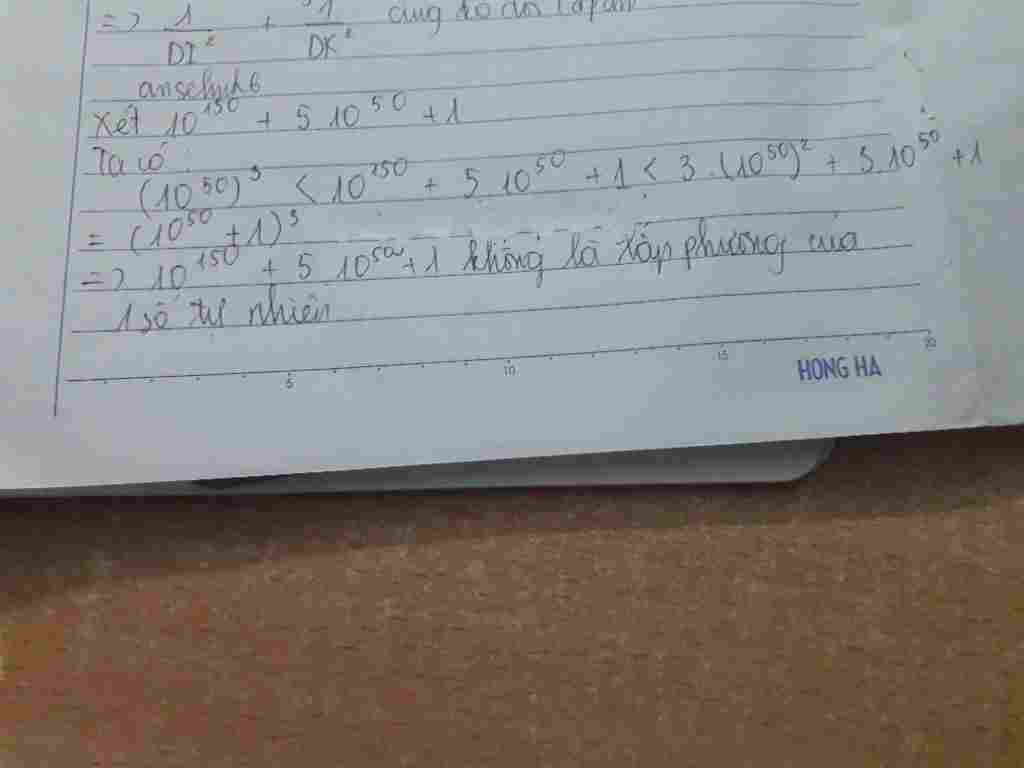 => 1/DI² + 1/DK²
Xét 10¹⁵⁰ + 5 10⁵⁰ + 1
Ta có
(10⁵⁰)³ < 10¹⁵⁰ + 5 10⁵⁰ + 1 < 3.(10⁵⁰)² + 3.10⁵⁰ + 1
= (10⁵⁰ + 1)³
=> 10¹⁵⁰ + 5 10⁵⁰ + 1 không là lập phương của
1 số tự nhiên
5 10 15 20
HONG HA